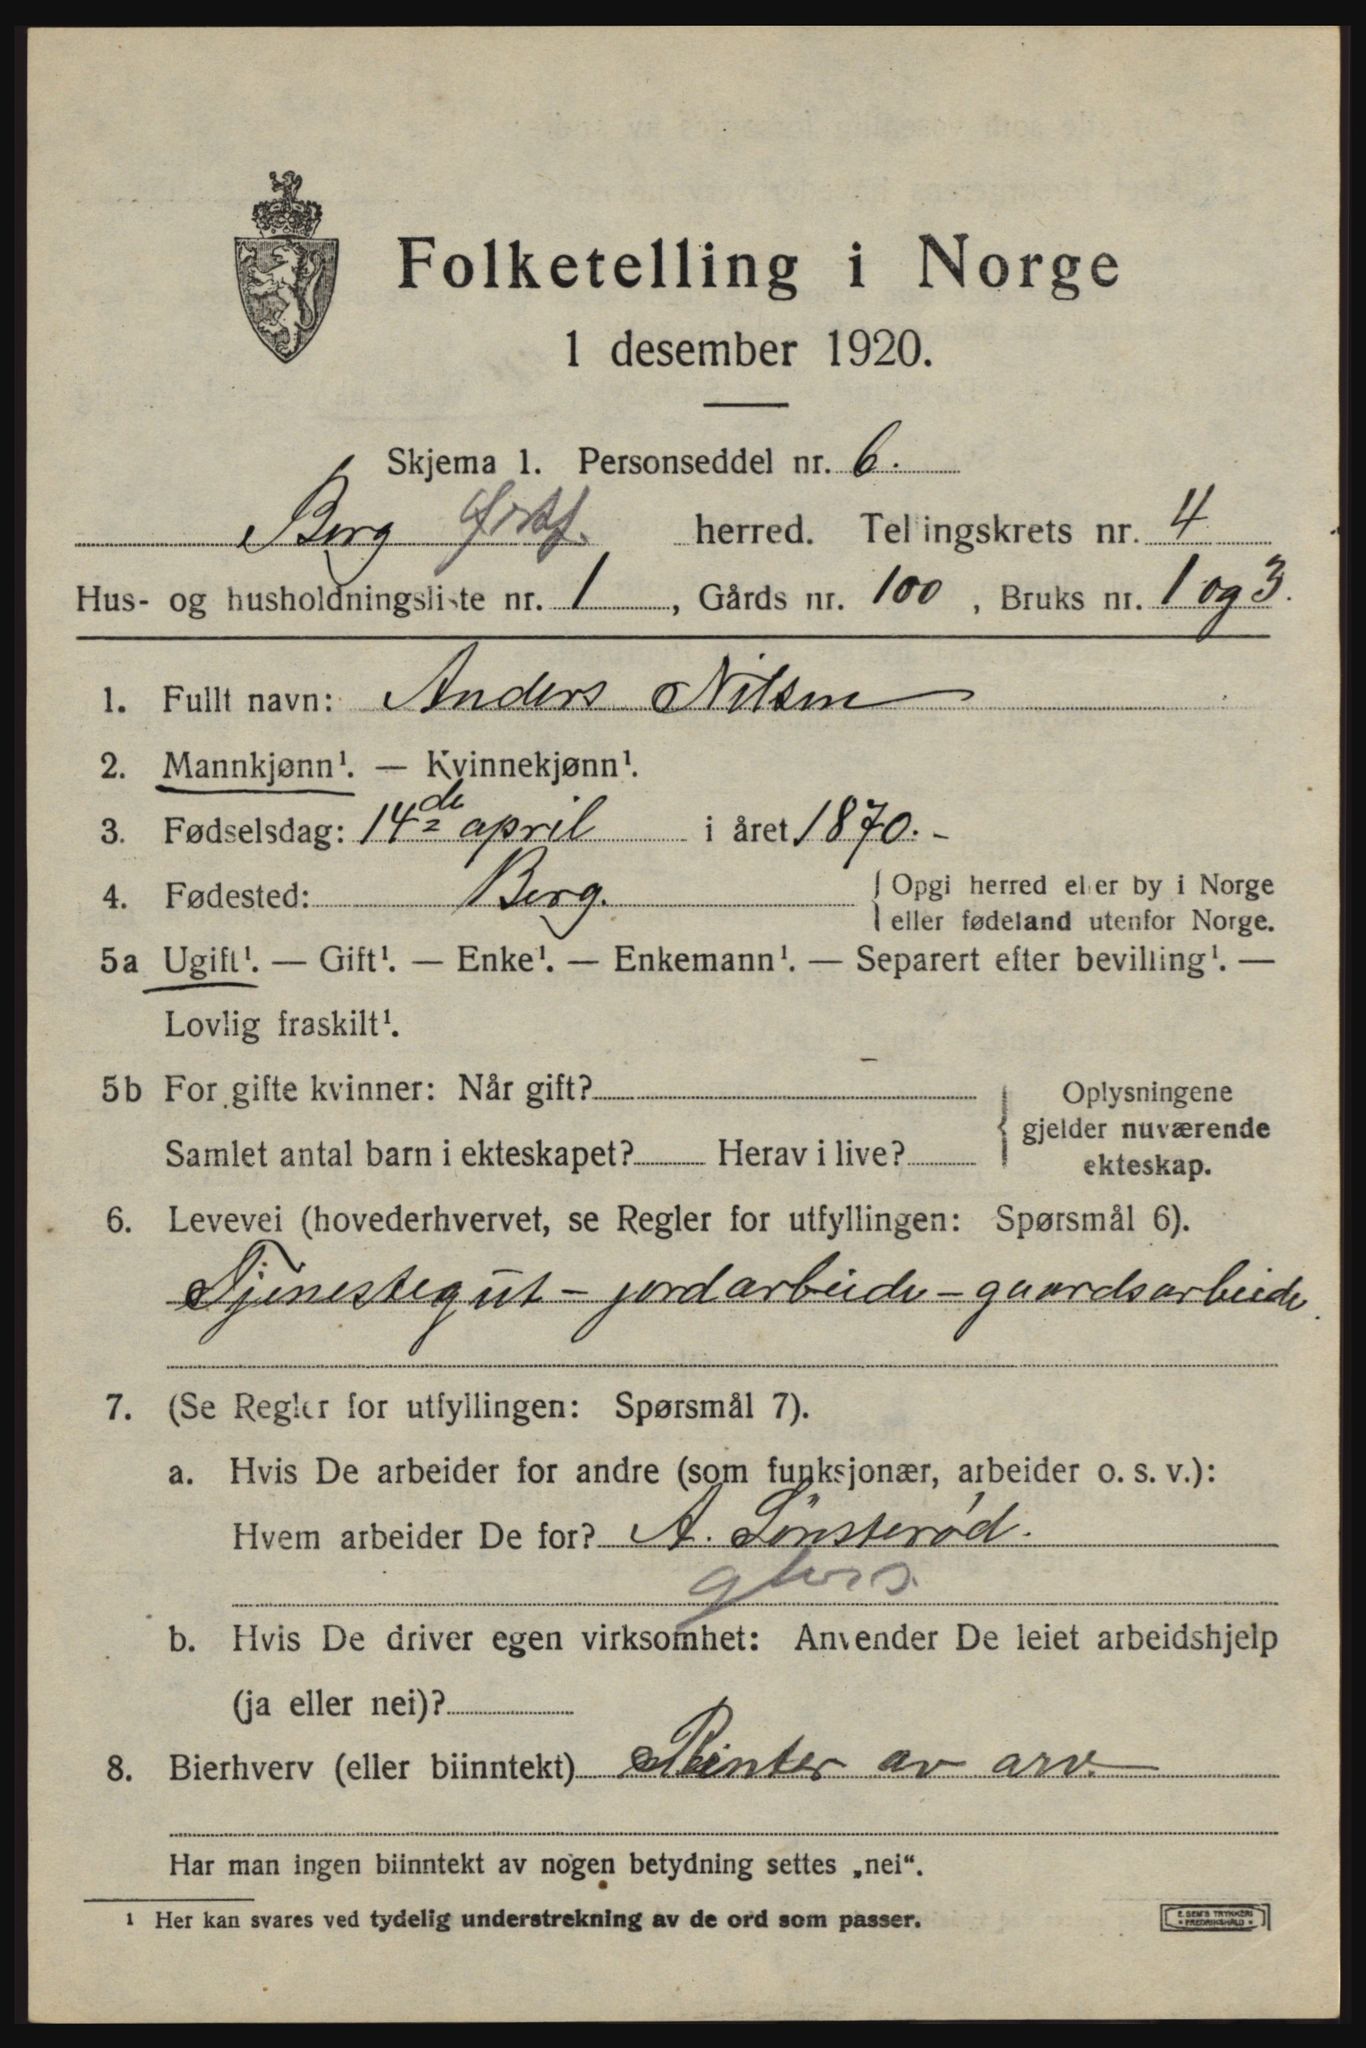 Folketelling i Norge
1 desember 1920.
Skjema 1. Personseddel nr. 6.
Berg Østf. herred. Tellingskrets nr. 4
Hus- og husholdningsliste nr. 1, Gårds nr. 100, Bruks nr. 1 og 3.
1. Fullt navn: Anders Nilsen
2. Mannkjønn¹. — Kvinnekjønn¹.
3. Fødselsdag: 14de april i året 1870. -
4. Fødested: Berg. { Opgi herred eller by i Norge
eller fødeland utenfor Norge.
5a Ugift¹. — Gift¹. — Enke¹. — Enkemann¹. — Separert efter bevilling¹. —
Lovlig fraskilt¹.
5b For gifte kvinner: Når gift? { Oplysningene
gjelder nuværende
Samlet antal barn i ekteskapet? Herav i live?
ekteskap.
6. Levevei (hovederhvervet, se Regler for utfyllingen: Spørsmål 6).
Tjenestegut - jordarbeide - gaardsarbeide.
7. (Se Regler for utfyllingen: Spørsmål 7).
a. Hvis De arbeider for andre (som funksjonær, arbeider o. s. v.):
Hvem arbeider De for? A. Lönsterød.
b. Hvis De driver egen virksomhet: Anvender De leiet arbeidshjelp
(ja eller nei)?
8. Bierhverv (eller biinntekt) Renter av arv.
Har man ingen biinntekt av nogen betydning settes „nei“.
¹ Her kan svares ved tydelig understrekning av de ord som passer.
E. SEM'S TRYKKERI
FREDRIKSHALD